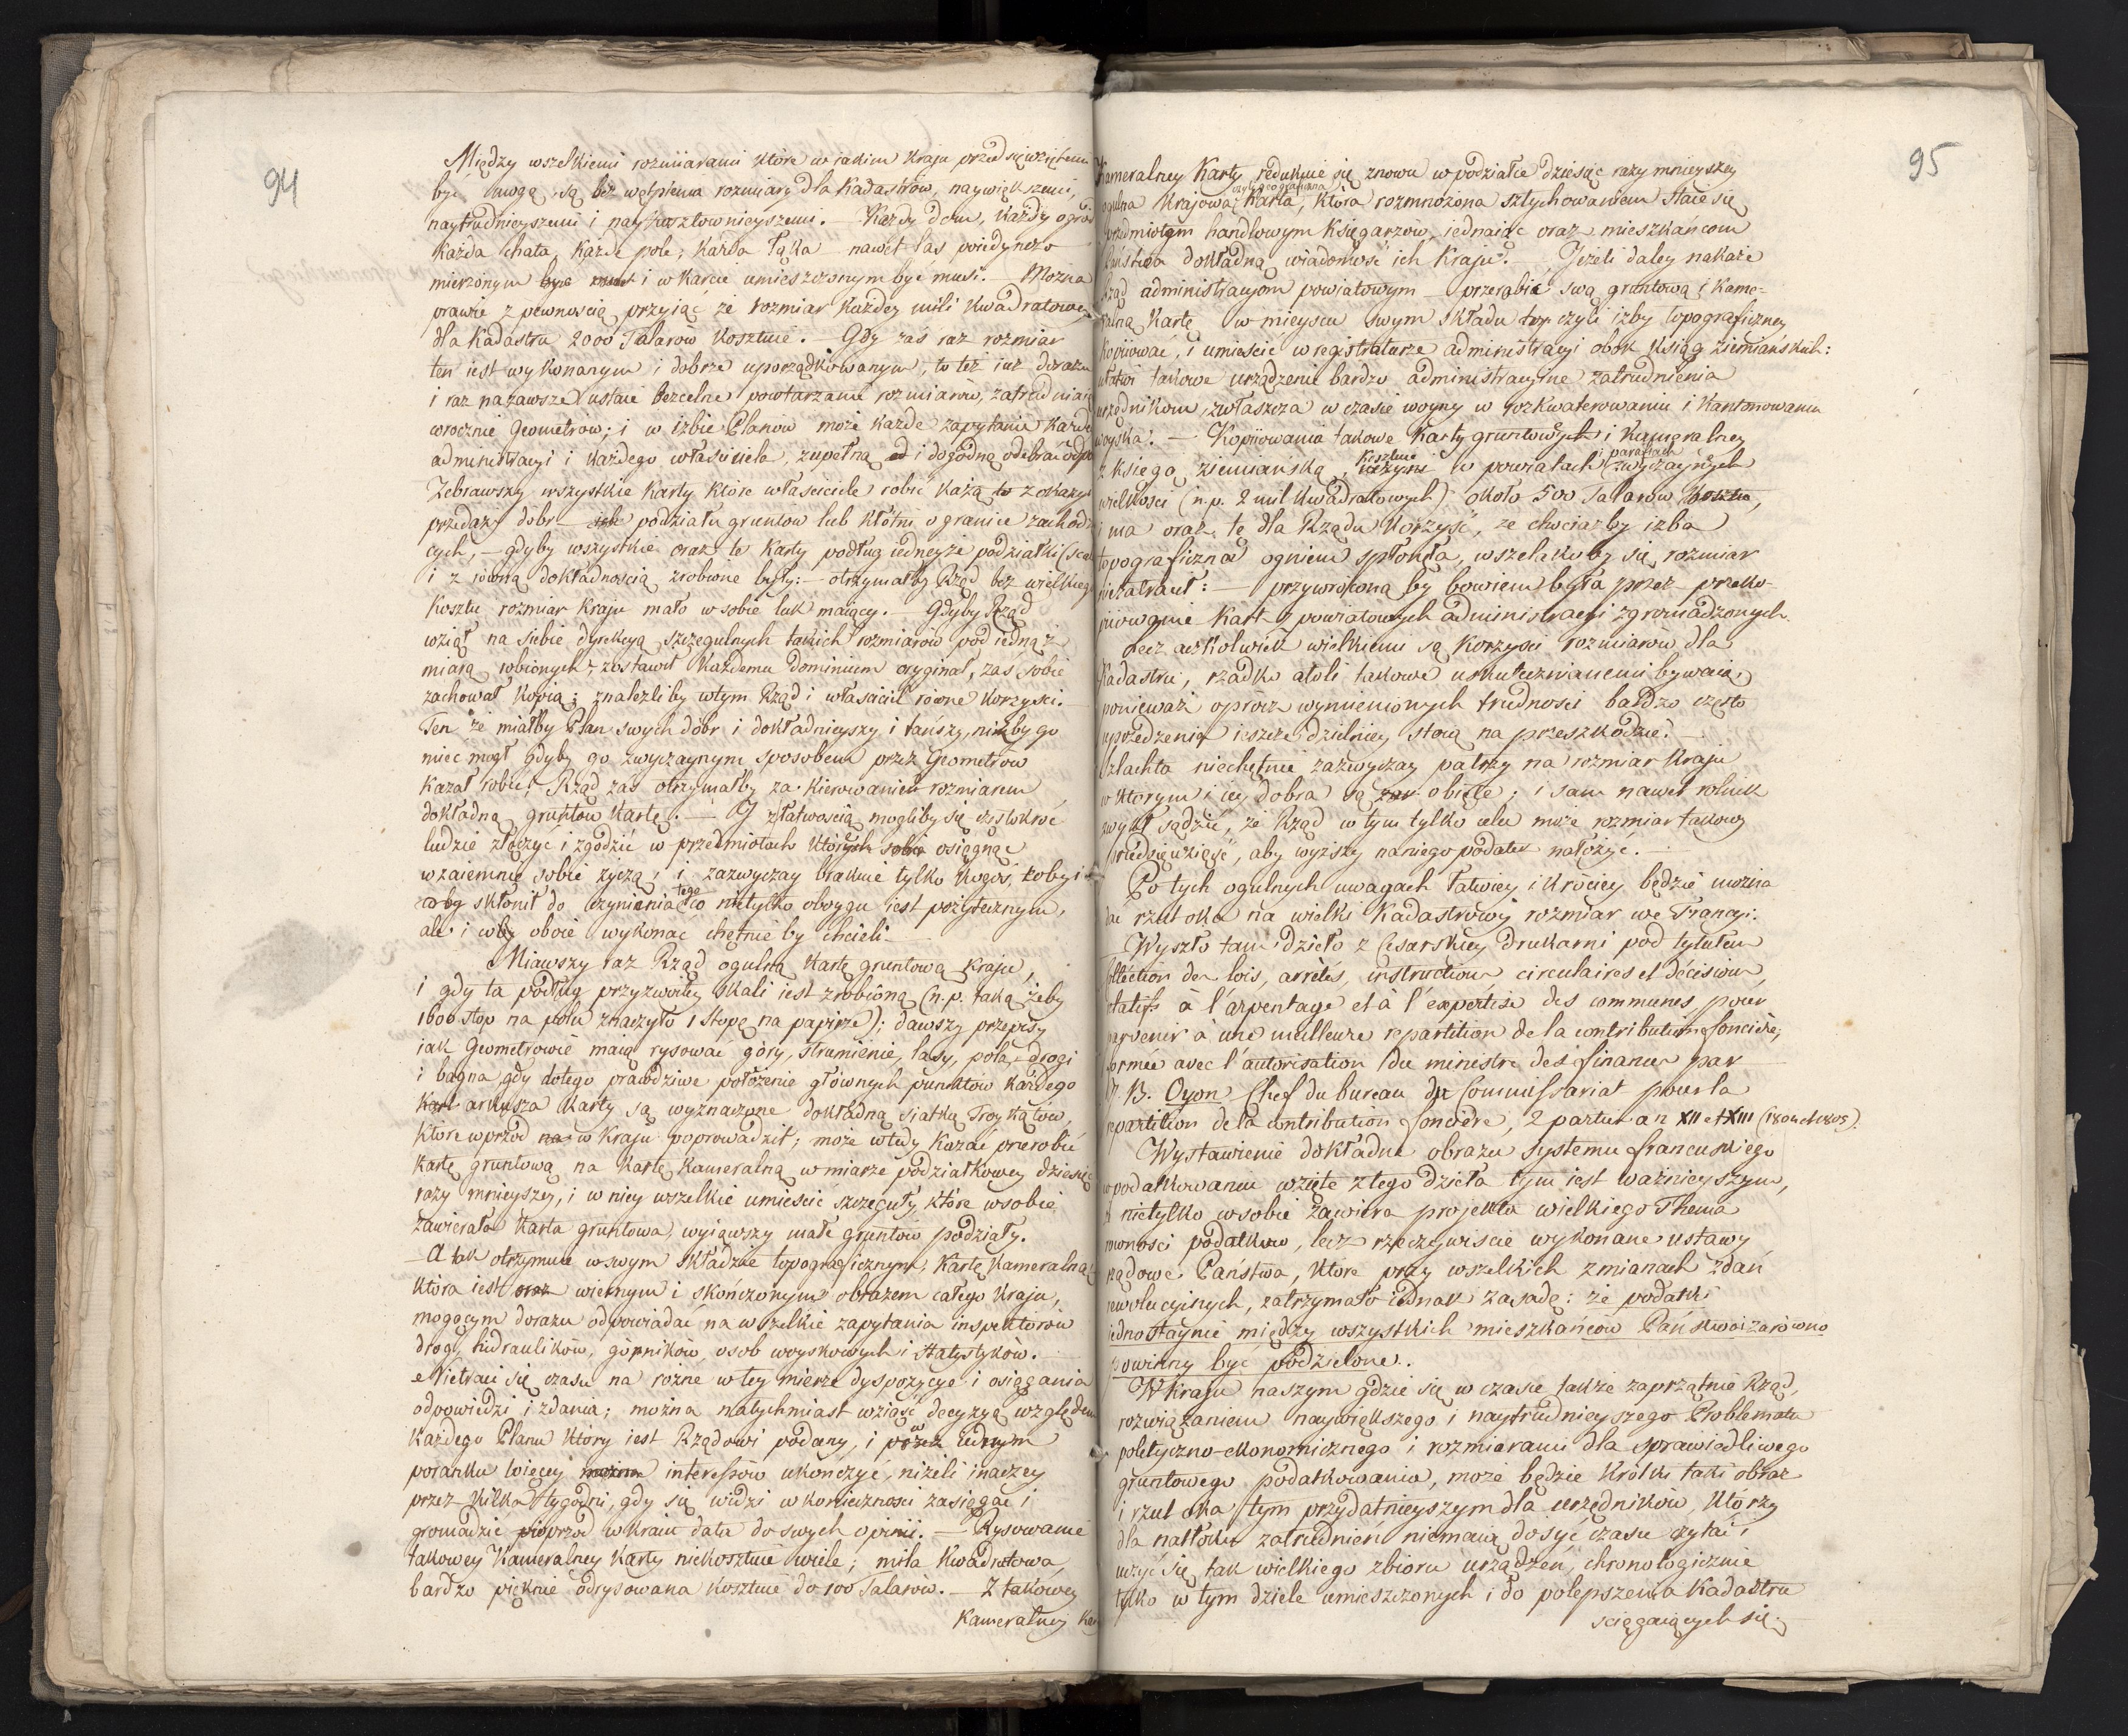 94
Między wszelkiemi rozmiarami które w iakim kraju przedsięwziętemi
być mogą są bez wątpienia rozmiary dla Kadastrów, naywiększemi,
naytrudnieyszemi i naykosztownieyszemi. — Każdy dom, każdy ogró
każda chata, każde pole, każda łąka nawet las poiedyńczo
mierzonym być i w karcie umieszczonym być musi. — Można
prawie z pewnością przyiąć że rozmiar każdey mili kwadratowey
dla Kadastru 2000 Talarów kosztuie. — Gdy zaś raz rozmiar
ten iest wykonanym i dobrze uporządkowanym, to też iuż doraźu
i raz nazawsze ustaie bezcelne powtarzanie rozmiarów, zatrudniaią
corocznie Geometrów; i w izbie Planów może każde zapytanie każde
administracyi i każdego właściciela, zupełną i dogodną odebrać odpo
Zebrawszy wszystkie Karty które właściciele robić każą z okazyi
przedaży dobr podziału gruntów lub kłótni o granice zachodzą
cych, — gdyby wszystkie oraz te Karty podług iedneyże podziałki (scal
i z równą dokładnością zrobione były: — otrzymałby Rząd bez wielkiego
kosztu rozmiar kraju mało w sobie luk maiący. — Gdyby Rząd
wziął na siebie dyrekcyą szczegulnych takich rozmiarów pod iedną ż
miarą robionych, zostawił każdemu Dominium oryginał, zaś sobie
zachował kopią; znaleźliby w tym Rząd i właściciel równe korzyści.
Ten że miałby Plan swych dóbr i dokładnieyszy i tańszy, niżby go
miec mógł gdyby go zwyczaynym sposobem przez Geometrów
kazał robić; Rząd zaś otrzymałby za kierowanien rozmiarem
dokładną gruntów kartę. — Y z łatwością mogliby się częstokroć
ludzie złączyć i zgodzić w przedmiotach których osiągnąć
wzaiemnie sobie życzą, i zazwyczay brakuie tylko kogoś, coby i
coby skłonił do czynienia tego co nietylko oboygu iest pożytecznym,
ale i coby oboie wykonać chętnie by chcieli. —
Miawszy raz Rząd ogulną kartę gruntową kraju,
i gdy ta podług przyzwoitey skali iest zrobioną (n.p. taką żeby
1600 stóp na polu znaczyło 1 stopę na papirze); dawszy przepisy
iak Geometrowie maią rysować góry, strumienie, lasy, pola, drogi
i bagna gdy dotego prawdziwe położenie głównych punktów każdego
arkusza Karty są wyznaczone dokładną siatką Troykątów,
które wprzód w kraju poprowadził; może wtedy kazać przerobić
kartę gruntową na Kartę kameralną w miarze podziałkowey dziesięć
razy mnieyszey, i w niey wszelkie umieścić szczeguły które w sobie
zawierała karta gruntowa, wyiąwszy małe gruntów podziały.
— A tak otrzymuie w swym składzie topograficznym, Kartę Kameralną,
która iest wiernym i skończonym obrazem całego kraju,
mogącym dorazu odpowiadać na wszelkie zapytania inspektorów
dróg, hidraulików, górników, osób woyskowych i statystyków.
Nietraci się czasu na rózne w tey mierze dyspozycye i osiągania
odpowiedzi i zdania; można natychmiast wziąść decyzyą względem
każdego Planu który iest Rządowi podany, i w iednym
poranku więcey interessów ukończyć, niżeli inaczey
przez kilka tygodni, gdy się widzi w konieczności zasięgać i
gromadzić wprzód w kraiu data do swych opinii. — Rysowanie
takowey Kameralney Karty niekosztuie wiele; mila kwadratowa
bardzo pięknie odrysowana kosztuie do 100 Talarów. — Z takowey
Kameralney Kar
95
Kameralney Karty redukuie się znowu w podziałce dziesięć razy mnieyszey
ogulna krajowa czyli geograficzna karta, która rozmnożona sztychowaniem staie się
przedmiotem handlowym Księgarzów, iednaiąc oraz mieszkańcom
Państwa dokładną wiadomość ich kraju. — Jeżeli daley nakaże
Rząd administracyom powiatowym przerabić swą gruntową i Kame-
ralną Kartę w mieyscu swym składu czyli izby topograficzney
kopiiować, i umieście w registraturze administracyi obok Ksiąg ziemiańskich:
ułatwi takowe urządzenie bardzo administracyine zatrudnienia
urzędnikom, zwłaszcza w czasie woyny w rozkwaterowaniu i kantonowaniu
woyska. — Kopiiowanie takowe Karty gruntowych i Kameralney
z księgą ziemiańską, kosztuie w powiatach i parafiach zwyczaynych
wielkości (n.p. 2 mil kwadratowych) około 500 Talarów,
i ma oraz tę dla Rządu korzyść, że chociażby izba
topograficzna ogniem spłonęła, wszelakoby się rozmiar
niezatracił: — przywróconą by bowiem była przez przeko-
piiowanie Kart powiatowych administracyi zgromadzonych.
Lecz aczkolwiek wielkiemi są korzyści rozmiarów dla
Kadastru, rzadko atoli takowe uskutecznianemi bywaią,
ponieważ oprócz wymienionych trudności bardzo często
uprzedzenia ieszcze dzielniey stoią na przeszkodzie. —
Szlachta niechętnie zazwyczay patrzy na rozmiar kraju
w którym i iey dobra są obięte; i sam nawet rolnik
zwykł sądzić, że Rząd w tym tylko celu może rozmiar takowy
przedsięwziąść, aby wyższy naniego podatek nałożyć. —
Po tych ogulnych uwagach łatwiey i krociey będzie można
dać rzut oka na wielki Kadastrowy rozmiar we Francyi.
— Wyszło tam dzieło z Cesarskiey drukarni pod tytułem
Colléction des lois, arrêtés, instructions, circulaires et décisions,
rélatifs à l'arpentage et à l'expertise des communes pour
parvenir à une meilleure repartition de la contribution foncière;
formée avec l'autorisation du ministre des finances par
J. B. Oyon Chef du bureau du Commissariat pour la
repartition de la contribution foncière, 2 parties an XII et XIII (1804 et 1805).
Wystawienie dokładne obrazu systemu francuskiego
w podatkowaniu wzięte z tego dzieła tym iest ważnieyszym,
że nietylko w sobie zawiera projekta wielkiego Thema
równości podatków, lecz rzeczywiscie wykonane ustawy
rządowe Państwa, które przy wszelkich zmianach zdań
rewolucyinych, zatrzymało iednak zasadę: że podatki
iednostaynie między wszystkich mieszkańców Państwa i zarówno
powinny być podzielone.
W kraju naszym gdzie się w czasie także zaprzątnie Rząd,
rozwiązaniem naywiększego i naytrudnieyszego Problematu
polityczno-ekonomicznego i rozmiarami dla sprawiedliwego
gruntowego podatkowania, może będzie krótki taki obraz
i rzut oka tym przydatnieyszym dla urzędników, którzy
dla natłoku zatrudnień niemaią dosyć czasu czytać i
uczyć się tak wielkiego zbioru urządzeń, chronologicznie
tylko w tym dziele umieszczonych i do polepszenia Kadastru
sciągaiących się.